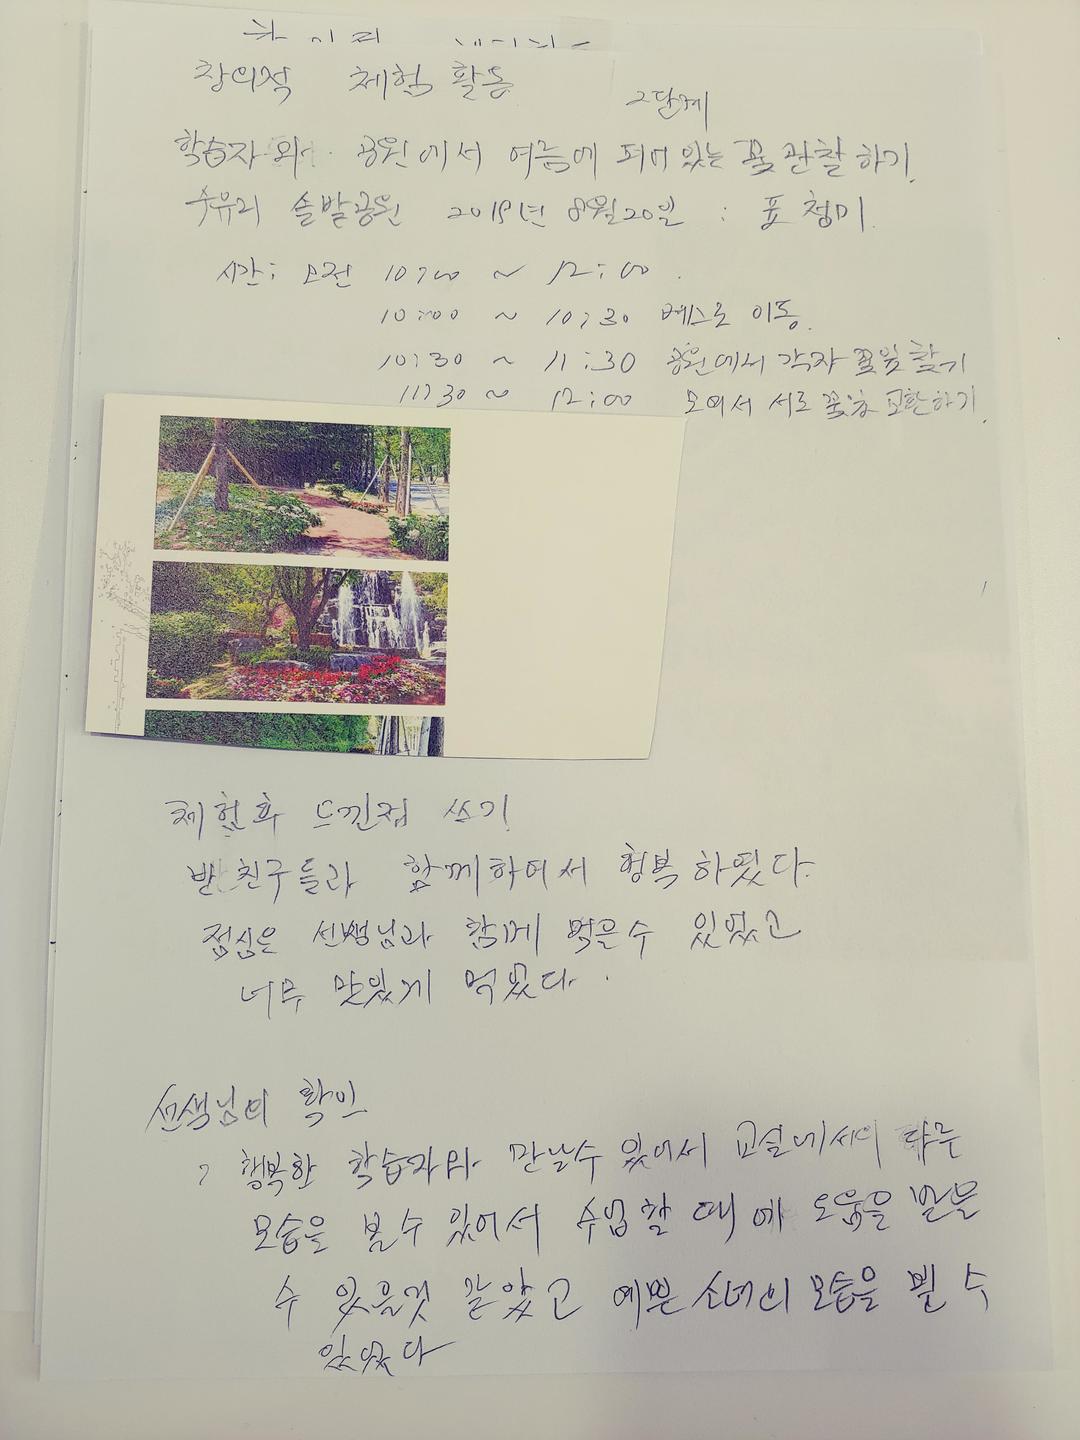 창의적 체험 활동
2단계
학습자와 공원에서 여름에 피어 있는 꽃 관찰하기.
수유리 솔밭공원 2019년 8월 20일 : 표 청미.
시간; 오전 10;00 ~ 12:00.
10:00 ~ 10;30 뻐스로 이동.
10;30 ~ 11:30 공원에서 각자 꽃잎 찾기
11;30 ~ 12:00 모여서 서로 교환하기.
체험후 느낀점 쓰기
반친구들과 함께하여서 행복 하였다.
점심은 선생님과 함께 먹을수 있었고
너무 맛있게 먹었다.
선생님의 확인
; 행복한 학습자와 만날수 있어서 교실에서의 다른
모습을 볼수 있어서 수업할 때에 도움을 받을
수 있을것 같았고 예쁜 소녀의 모습을 볼 수
있었다